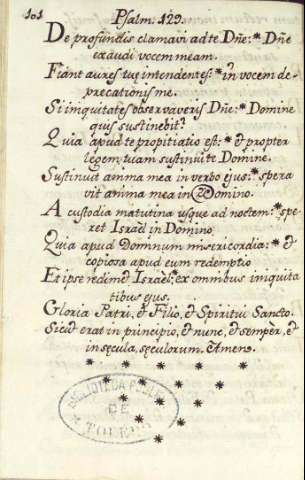 101
Psalm. 129.
De profundis clamavi ad te Dñe: * Dñe
exaudi vocem meam.
Fiant aures tuę intendentes: * in vocem de-
precationis me.
Si iniquitates observaveris Dñe: * Domine
quis sustinebit?
Quia apud te propitiatio est: * & propter
legem tuam sustinui te Domine.
Sustinuit anima mea in verbo ejus: * spera
vit anima mea in Domino.
A custodia matutina usque ad noctem: * spe
ret Israël in Domino,
Quia apud Dominum misericordia: * &
copiosa apud eum redemptio
Et ipse redimet Israël: ex omnibus iniquita
tibus ejus.
Gloria Patri, & Filio, & Spiritui Sancto.
Sicut erat in principio, & nunc, & semper, &
in sęcula, sęculorum. Amen.
BIBLIOTECA
DE
TOLEDO